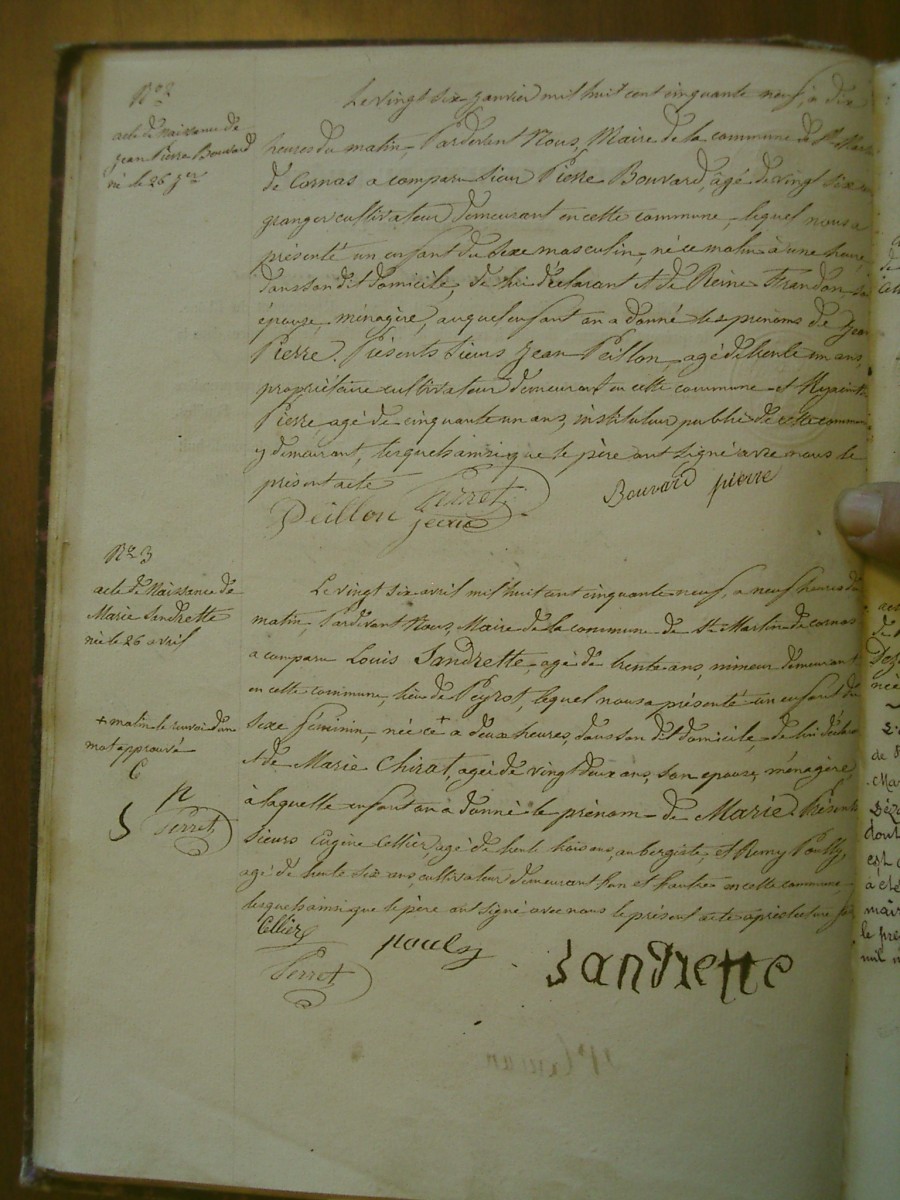 No 2
acte de Naissance de
Jean Pierre Bouvard
né le 26 Jer
Le vingt six Janvier mil huit cent cinquante neuf, à dix
heures du matin, Pardevant Nous, Maire de la commune de St Martin
de Cornas a comparu Sieur Pierre Bouvard, âgé de vingt six ans
granger cultivateur demeurant en cette commune, lequel nous a
présenté un enfant du sexe masculin, né ce matin à une heure,
dans son dit domicile, de lui déclarant et de Reine Frandon, sa
épouse, ménagère, auquel enfant on a donné les prénoms de Jean
Pierre. Présents Sieurs Jean Peillon, agé de trente un ans,
propriétaire cultivateur demeurant en cette commune et
Pierre agé de cinquante un ans, instituteur public de cette commune
y demeurant, lesquels ainsi que le père ont signé avec nous le
présent acte
Peillon Jean Perret Bouvard pierre
No 3
acte de Naissance de
Marie Sandrette
née le 26 avril
Le vingt six avril mil huit cent cinquante neuf, a neuf heures du
matin, Pardevant Nous, Maire de la commune de St Martin de cornas
a comparu Louis Sandrette, agé de trente ans, mineur demeurant
en cette commune, lieu de Peyrot, lequel nous a présenté un enfant du
sexe féminin, née ce + a deux heures, dans son dit domicile, de lui déclarant
et de Marie Chirat, agée de vingt deux ans, son epouse, ménagère,
à laquelle enfant on a donné le prénom de Marie. Présents
sieurs Eugène Cellier, agé de trente trois ans, aubergiste, et Remy Pouly,
agé de trente six ans, cultivateur demeurant l'un et l'autre en cette commune,
lesquels ainsi que le père ont signé avec nous le présent acte après lecture
+ matin le renvoi d'un
mot approuvé
C
p
S Perret
Cellier pouly Sandrette
Perret